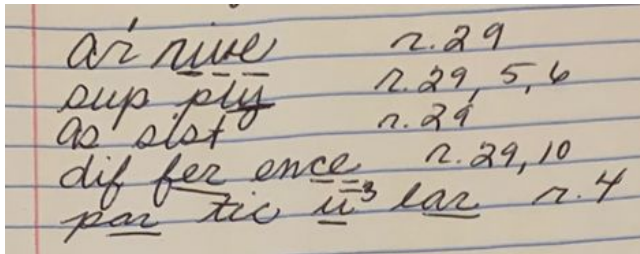 ar rive r. 29
sup ply r. 29, 5, 6
as sist r. 29
dif fer ence r. 29, 10
par tic u³ lar r. 4